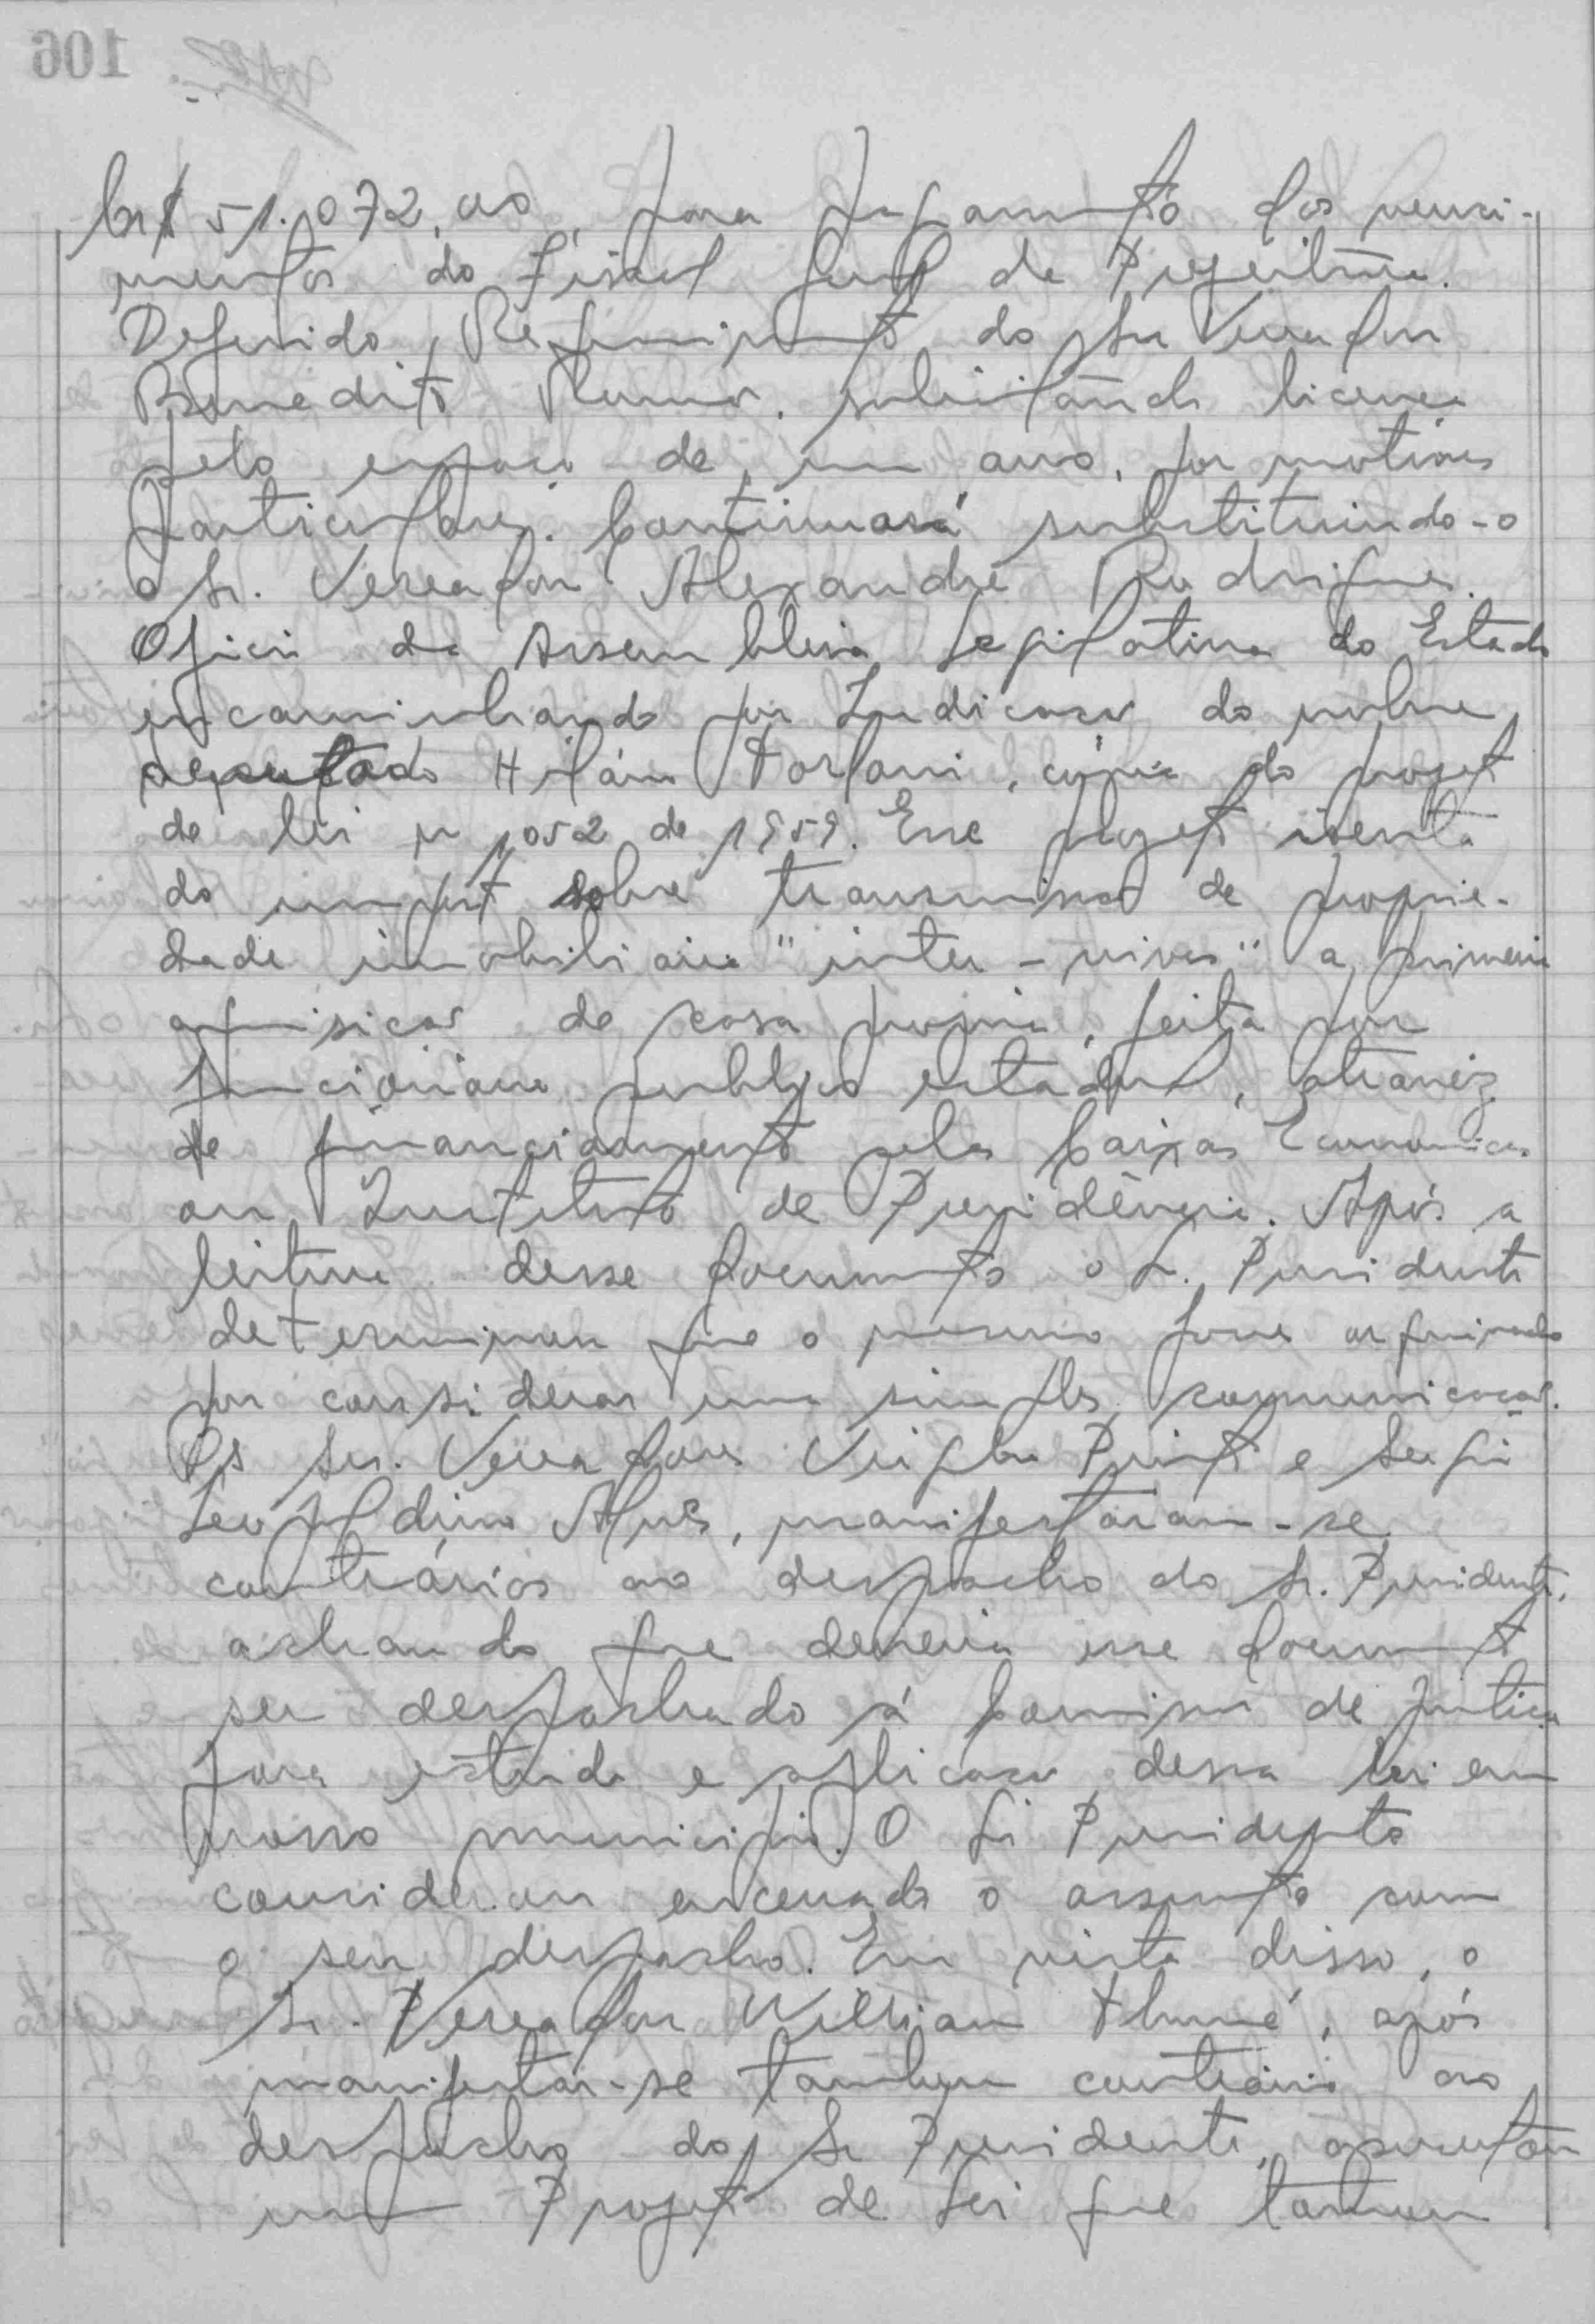 Cr$ 51.072,00, para pagamento dos venci-
mentos do Fiscal Geral da Prefeitura.
Deferido. Requerimento do Sr Vereador
Benedito solicitando licença
pelo espaço de um ano, por motivos
particulares. Continuará substituindo-o
o Sr. Vereador Alexandre Rodrigues.
Oficio da Assembleia Legislativa do Estado
encaminhando por Indicacao do nobre
deputado Hilário Torloni, cópia do projeto
de lei n 1052 de 1959. Esse projeto isenta
do imposto sobre transmissao de proprie-
dade imobiliaria "inter-vivos" a primeira
aquisicao de casa propria, feita por
funcionario publico estadual, atravéz
de financiamento pelas Caixas Economicas
ou Instituto de Previdência. Após a
leitura desse documento o Sr. Presidente
determinou que o mesmo fosse arquivado
por considerar uma simples comunicacao.
Os Srs. Vereadores Virgilio Pinto e Sergio
Leopoldino Alves, manifestaram-se
contrários ao despacho do Sr. Presidente,
achando que deveria esse documento
ser despachado á Comissao de Justica
para estudo e aplicacao dessa lei em
nosso municipio. O Sr Presidente
considerou encerrado o assunto com
o seu despacho. Em vista disso, o
Sr. Vereador Willian Thomé, após
manifestar-se tambem contrário ao
despacho do Sr Presidente, apresentou
um Projeto de Lei que tambem